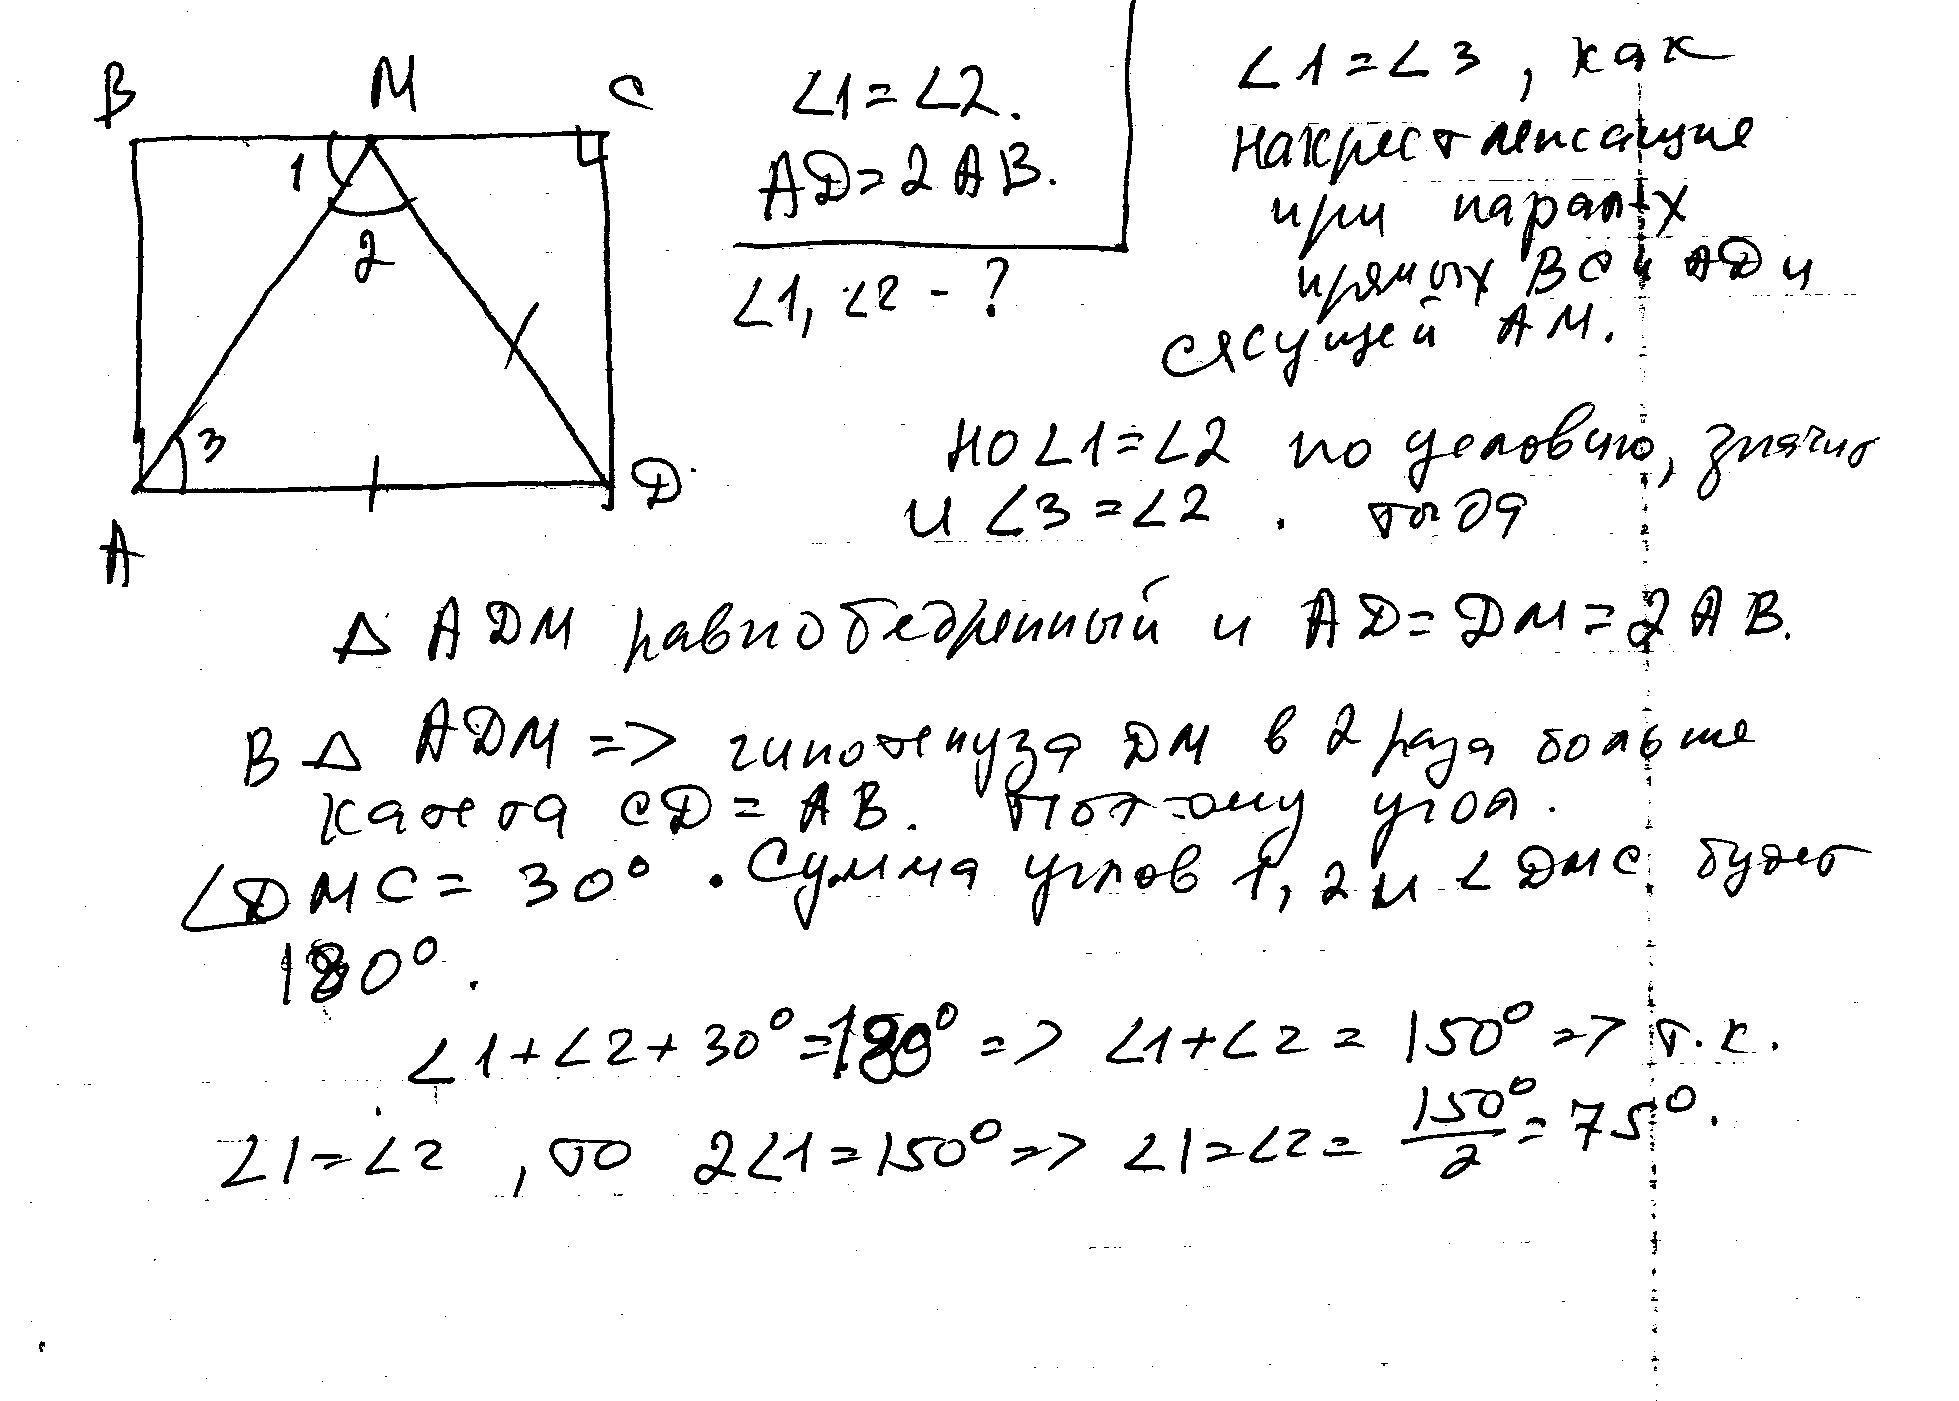 B M C
1
2
3
A D
∠1=∠2.
AD=2AB.
∠1, ∠2 - ?
∠1=∠3, как
накрест лежащие
при парал-х
прямых BC и AD и
сякущей AM.
но ∠1=∠2 по условию, значит
и ∠3=∠2. тогда
Δ ADM равнобедренный и AD=DM=2AB.
В Δ ADM => гипотенуза DM в 2 раза больше
катета CD=AB. Поэтому угол.
∠DMC=30°. Сумма углов 1, 2 и ∠DMC будет
180°.
∠1+∠2+30°=180° => ∠1+∠2=150° => т.к.
∠1=∠2, то 2∠1=150° => ∠1=∠2=150°/2=75°.